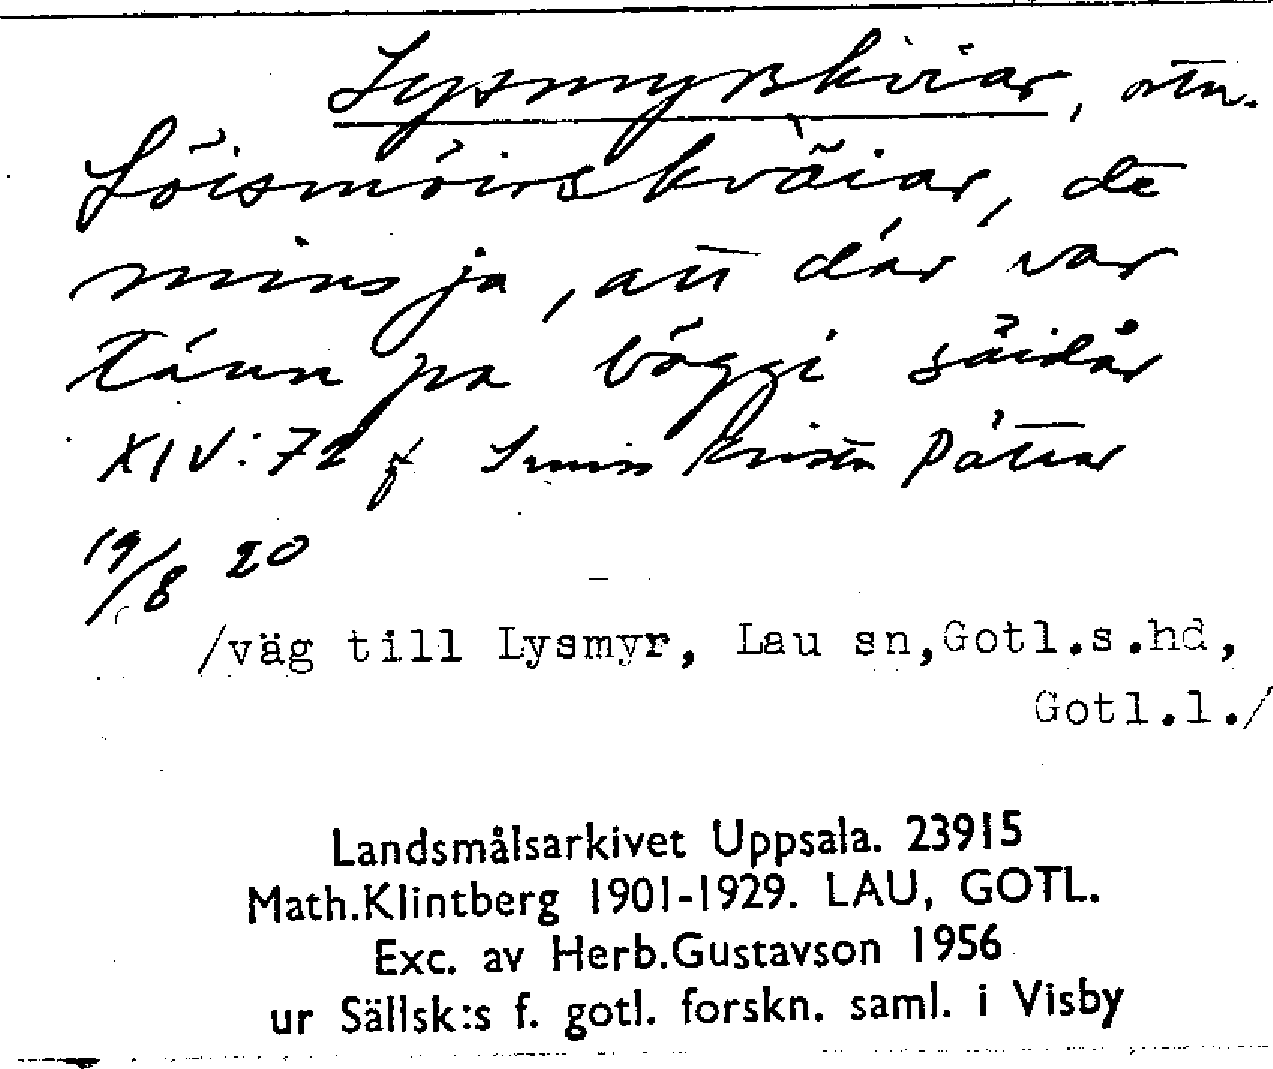 Lysmyrskviar, ortn.
Löismöirskväiar, de
mins ja, att där var
täun pa böggi säidår
XIV:72 f Kristn Pätrar
19/8 20
/väg till Lysmyr, Lau sn,Gotl.s.hd,
Gotl.l./
Landsmålsarkivet Uppsala. 23915
Math.Klintberg 1901-1929. LAU, GOTL.
Exc. av Herb.Gustavson 1956
ur Sällsk:s f. gotl. forskn. saml. i Visby